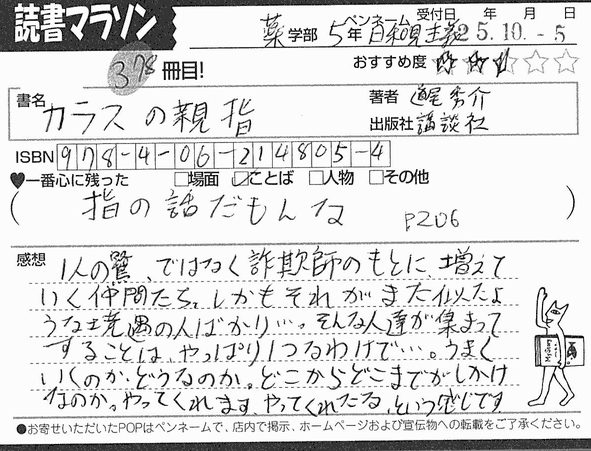 読書マラソン
薬学部 5年 ペンネーム 日和見主義 受付日 年 月 日
25.10.-5
378冊目!
おすすめ度 ★★★☆☆
書名 カラスの親指
著者 道尾秀介
出版社 講談社
ISBN 978-4-06-214805-4
♥一番心に残った □場面 ☑ことば □人物 □その他
( 指の話だもんな P206 )
感想 1人の鷺、ではなく詐欺師のもとに、増えて
いく仲間たち。しかもそれがまた似たよ
うな境遇の人ばかり…。そんな人達が集まって
することは、やっぱり1つなわけで…。うまく
いくのか、どうなのか。どこからどこまでがしかけ
なのか。やってくれます、やってくれたる、という感じです
●お寄せいただいたPOPはペンネームで、店内で掲示、ホームページおよび宣伝物への転載をご了承ください。